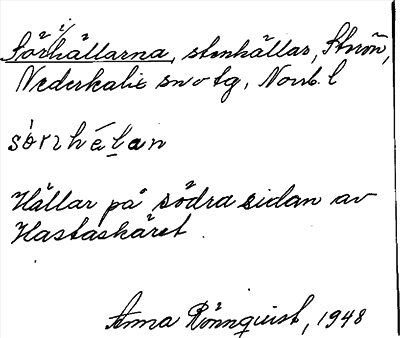 Sörhällarna, stenhällar, Strön,
Nederkalix sn o tg, Norrb. l
sörhélan
Hällar på södra sidan av
Hastaskäret.
Anna Rönnquist, 1948